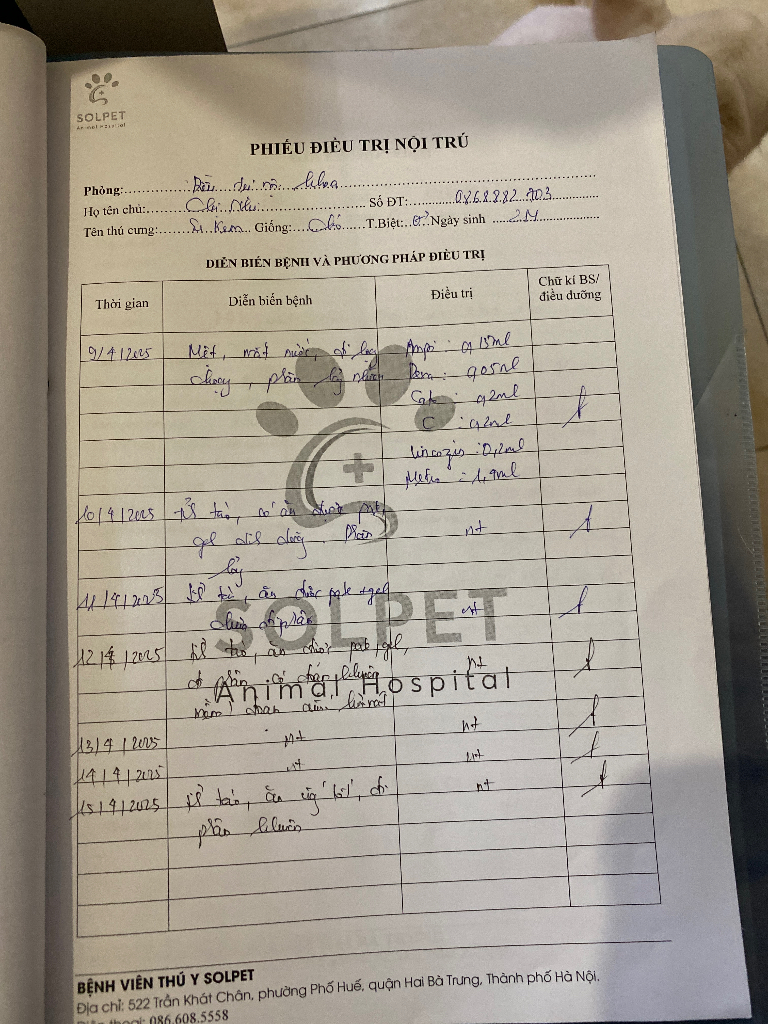 SOLPET
Animal Hospital
PHIẾU ĐIỀU TRỊ NỘI TRÚ
Phòng: Điều trị nô
Họ tên chủ: Chị Nhi Số ĐT: 0868.882.703
Tên thú cưng: Kem Giống: Chó T.Biệt: Ngày sinh 2M
DIỄN BIẾN BỆNH VÀ PHƯƠNG PHÁP ĐIỀU TRỊ
Thời gian Diễn biến bệnh Điều trị Chữ kí BS/ điều dưỡng
9/4/2025 Mệt, mất nước, Ampi: 0,15ml
chảy, phân lẫy Dexa: 0,05ml
0,2ml
C : 0,2ml
lincozin : 0,2ml
Metro : 1,9ml
10/4/2025 tỉnh táo, có ăn được
gel dinh dưỡng. Phân nt
lỏng
11/4/2025 táo, ăn được pate + gel
chưa đi phân nt
SOLPET
12/4/2025 táo, ăn được pate, gel,
đi phân có nt
Animal Hospital
mềm, đoạn cuối
13/4/2025 nt nt
14/4/2025 nt nt
15/4/2025 táo, ăn uống tốt, đi nt
phân khuôn
BỆNH VIỆN THÚ Y SOLPET
Địa chỉ: 522 Trần Khát Chân, phường Phố Huế, quận Hai Bà Trưng, Thành phố Hà Nội.
Điện thoại: 086.608.5558